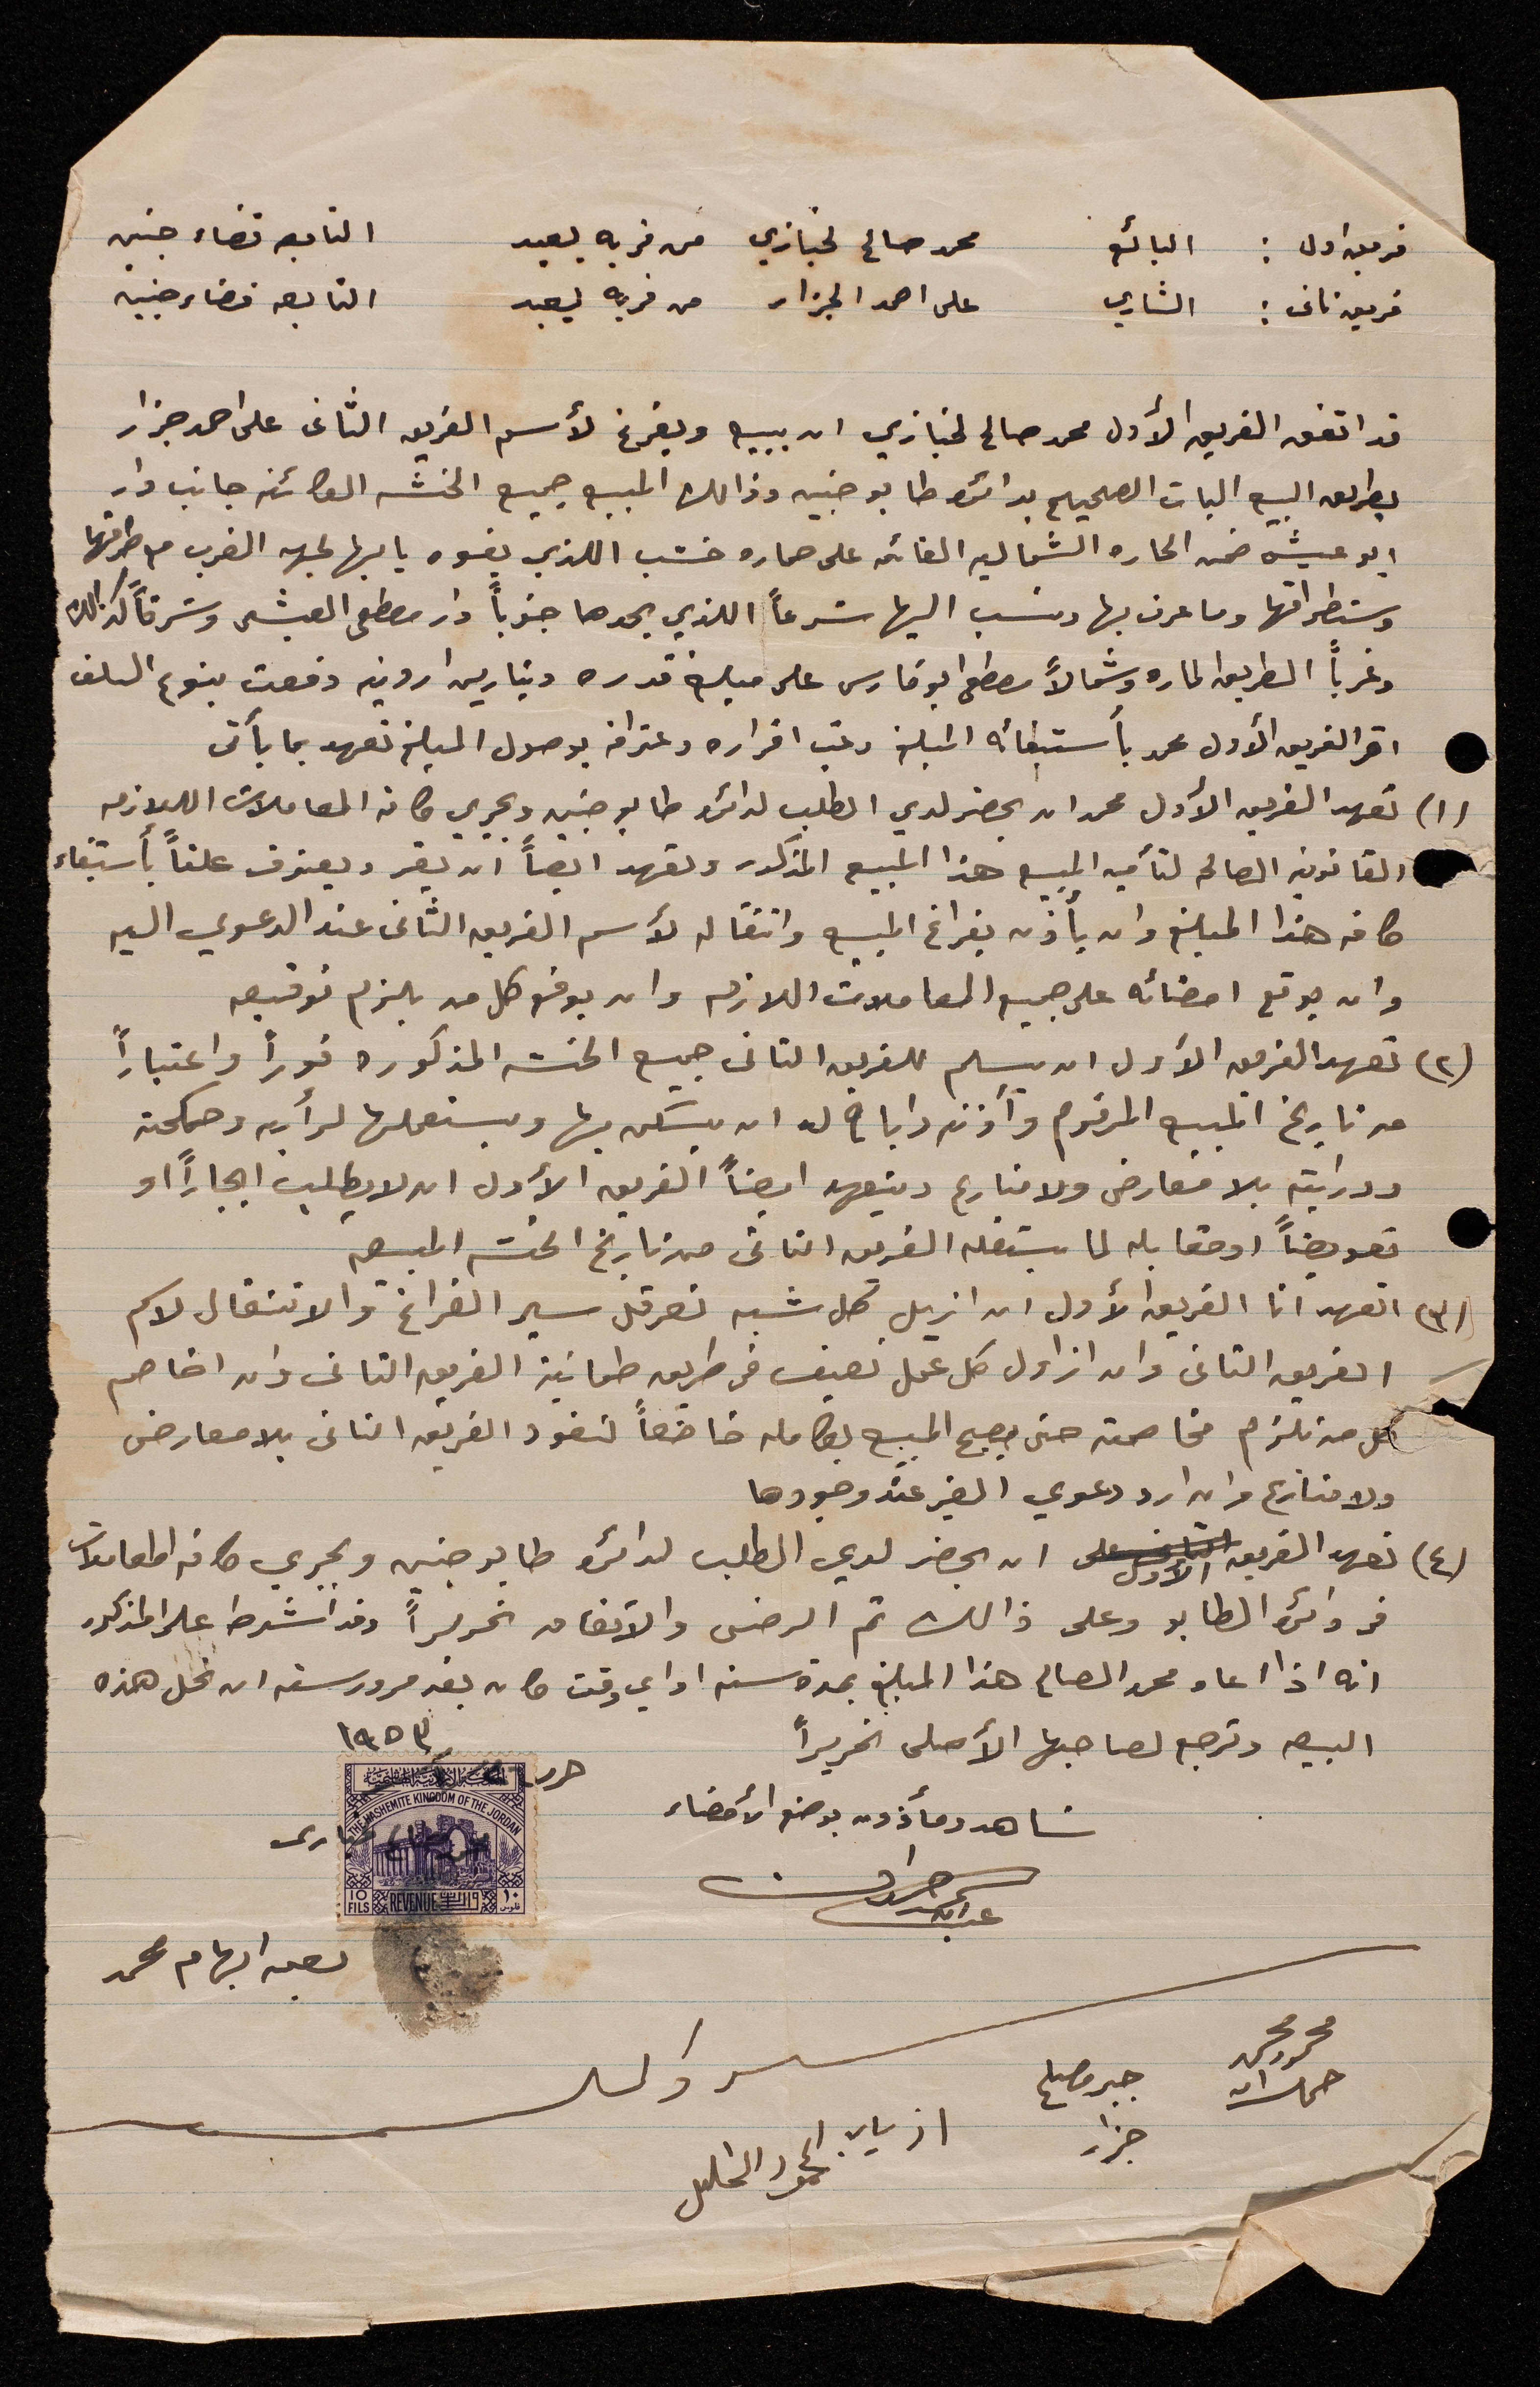 فريق اول : البائع محمد صالح لخبازي من قريه يعبد التابعه قضاء جنين
فريق ثانى : الشاري على احمد الجزار من قريه يعبد التابعه قضاء جنين
قد اتفق الفريق الأول محمد صالح لخبازي ان يبيع ويفرغ لأسم الفريق الثانى على احمد جزار
بطريق البيع البات الصحيح بدائرة طابو جنين وذالك المبيع جميع الخشه الكائنه جانب دار
ابو عيشه ضمن الحاره الشماليه القائمه على حماره خشب اللذي يفوه بابها لجهه الغرب مع طرقها
وستطراقها وما عرف بها ونسب اليها شرعاً اللذي يحدها جنوباً دار مصطفى العيشى وشرقاً كذالك
وغرباً الطريق الماره وشمالاً مصطفى ابو فارس على مبلغ قدره دينارين اردنيه دفعت بنوع السلف
اقر الفريق الأول محمد بأستيفائه المبلغ وعقب اقراره وعترافه بوصول المبلغ تعهد بما يأتى
(١) تعهد الفريق الأول محمد ان يحضر لدي الطلب لدائرة طابو جنين ويجري كافة المعاملات اللازمه
القانونيه الصالحه لتأمين المبيع هذا المبيع المذكور وتعهد ايضاً ان يقر ويعترف علناً بأستيفاء
كافه هذا المبلغ وان يأذن بفراغ المبيع وانتقاله لأسم الفريق الثانى عند الدعوي اليه
وان يوقع امضائه على جميع المعاملات اللازمه وان يوقع كل من يلزم توقيعه
(٢) تعهد الفريق الأول ان يسلم للفريق الثانى جميع الخشه المذكوره فوراً واعتباراً
من تاريخ المبيع المرقوم وأذنه واباح له ان يسكن بها ويستعملها لرأيه وحكمته
ودرايته بلا معارض ولا منازع ويتعهد ايضاً الفريق الأول ان لا يطلب ايجاراً او
تعويضاً او مقابله لما يستغله الفريق الثانى من تاريخ الخشه المبيعه
(٣) اتعهد انا الفريق الأول ان ازيل كل شبه تعرقل سير الفراغ والانتقال لاسم
الفريق الثانى وان ازاول كل عمل نصيف فى طريق طمانينة الفريق الثانى وان اخاصم
كل من تلزم مخاصمته حتى يصبح المبيع بكامله خاضعاً لنفوذ الفريق الثانى بلا معارض
ولا منازع وان ارد دعوي الغير عند وجودها
(٤) تعهد الفريق الأول ان يحضر لدي الطلب لدائرة طابو جنين ويجري كافه المعاملات
فى دائرة الطابو وعلى ذالك تم الرضى والأتفاق تحريراً وقد اشترط على المذكور
انه اذا اعاد محمد الصالح هذا المبلغ بمدة سنه او اي وقت كان بعد مرور سنه ان تحل هذه
البيعه وترجع لصاحبها الأصلى تحريراً
١٩٥٣
حرر
THE HASHEMITE KINGDOM OF THE JORDAN
10 FILS REVENUE ١٠ فلوس
شاهد ومأذون بوضع الأمضاء
بصمه ابهام محمد
محمود محمد
جبر مصلح
جزار
محمود الخليل